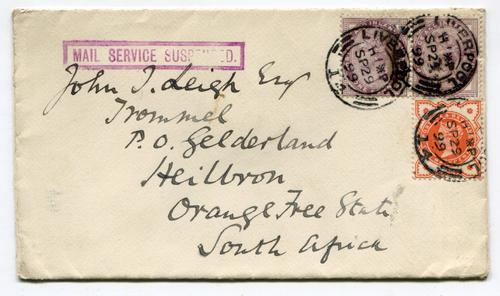 MAIL SERVICE SUSPENDED.
LIVERPOOL
SP 29
99
LIVERPOOL
SP 29
99
SP 29
99
John J. Leigh Esq
Trommel
P.O. Gelderland
Heilbron
Orange Free State
South Africa